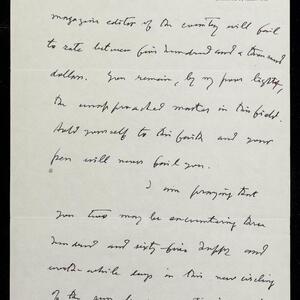 magazine editor of the country will fail
to rate between five hundred and a thousand
dollars. You remain, by my poor lights,
the unapproached master in this field.
Hold yourself to this faith and your
pen will never fail you.
I am praying that
you two may be encountering three
hundred and sixty-five happy and
worth-while days in this new circling
of the sun